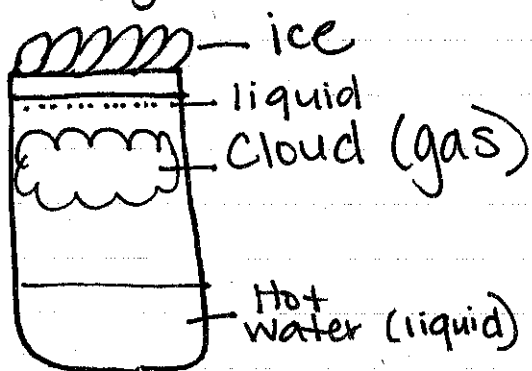 ice
liquid
cloud (gas)
Hot
water (liquid)